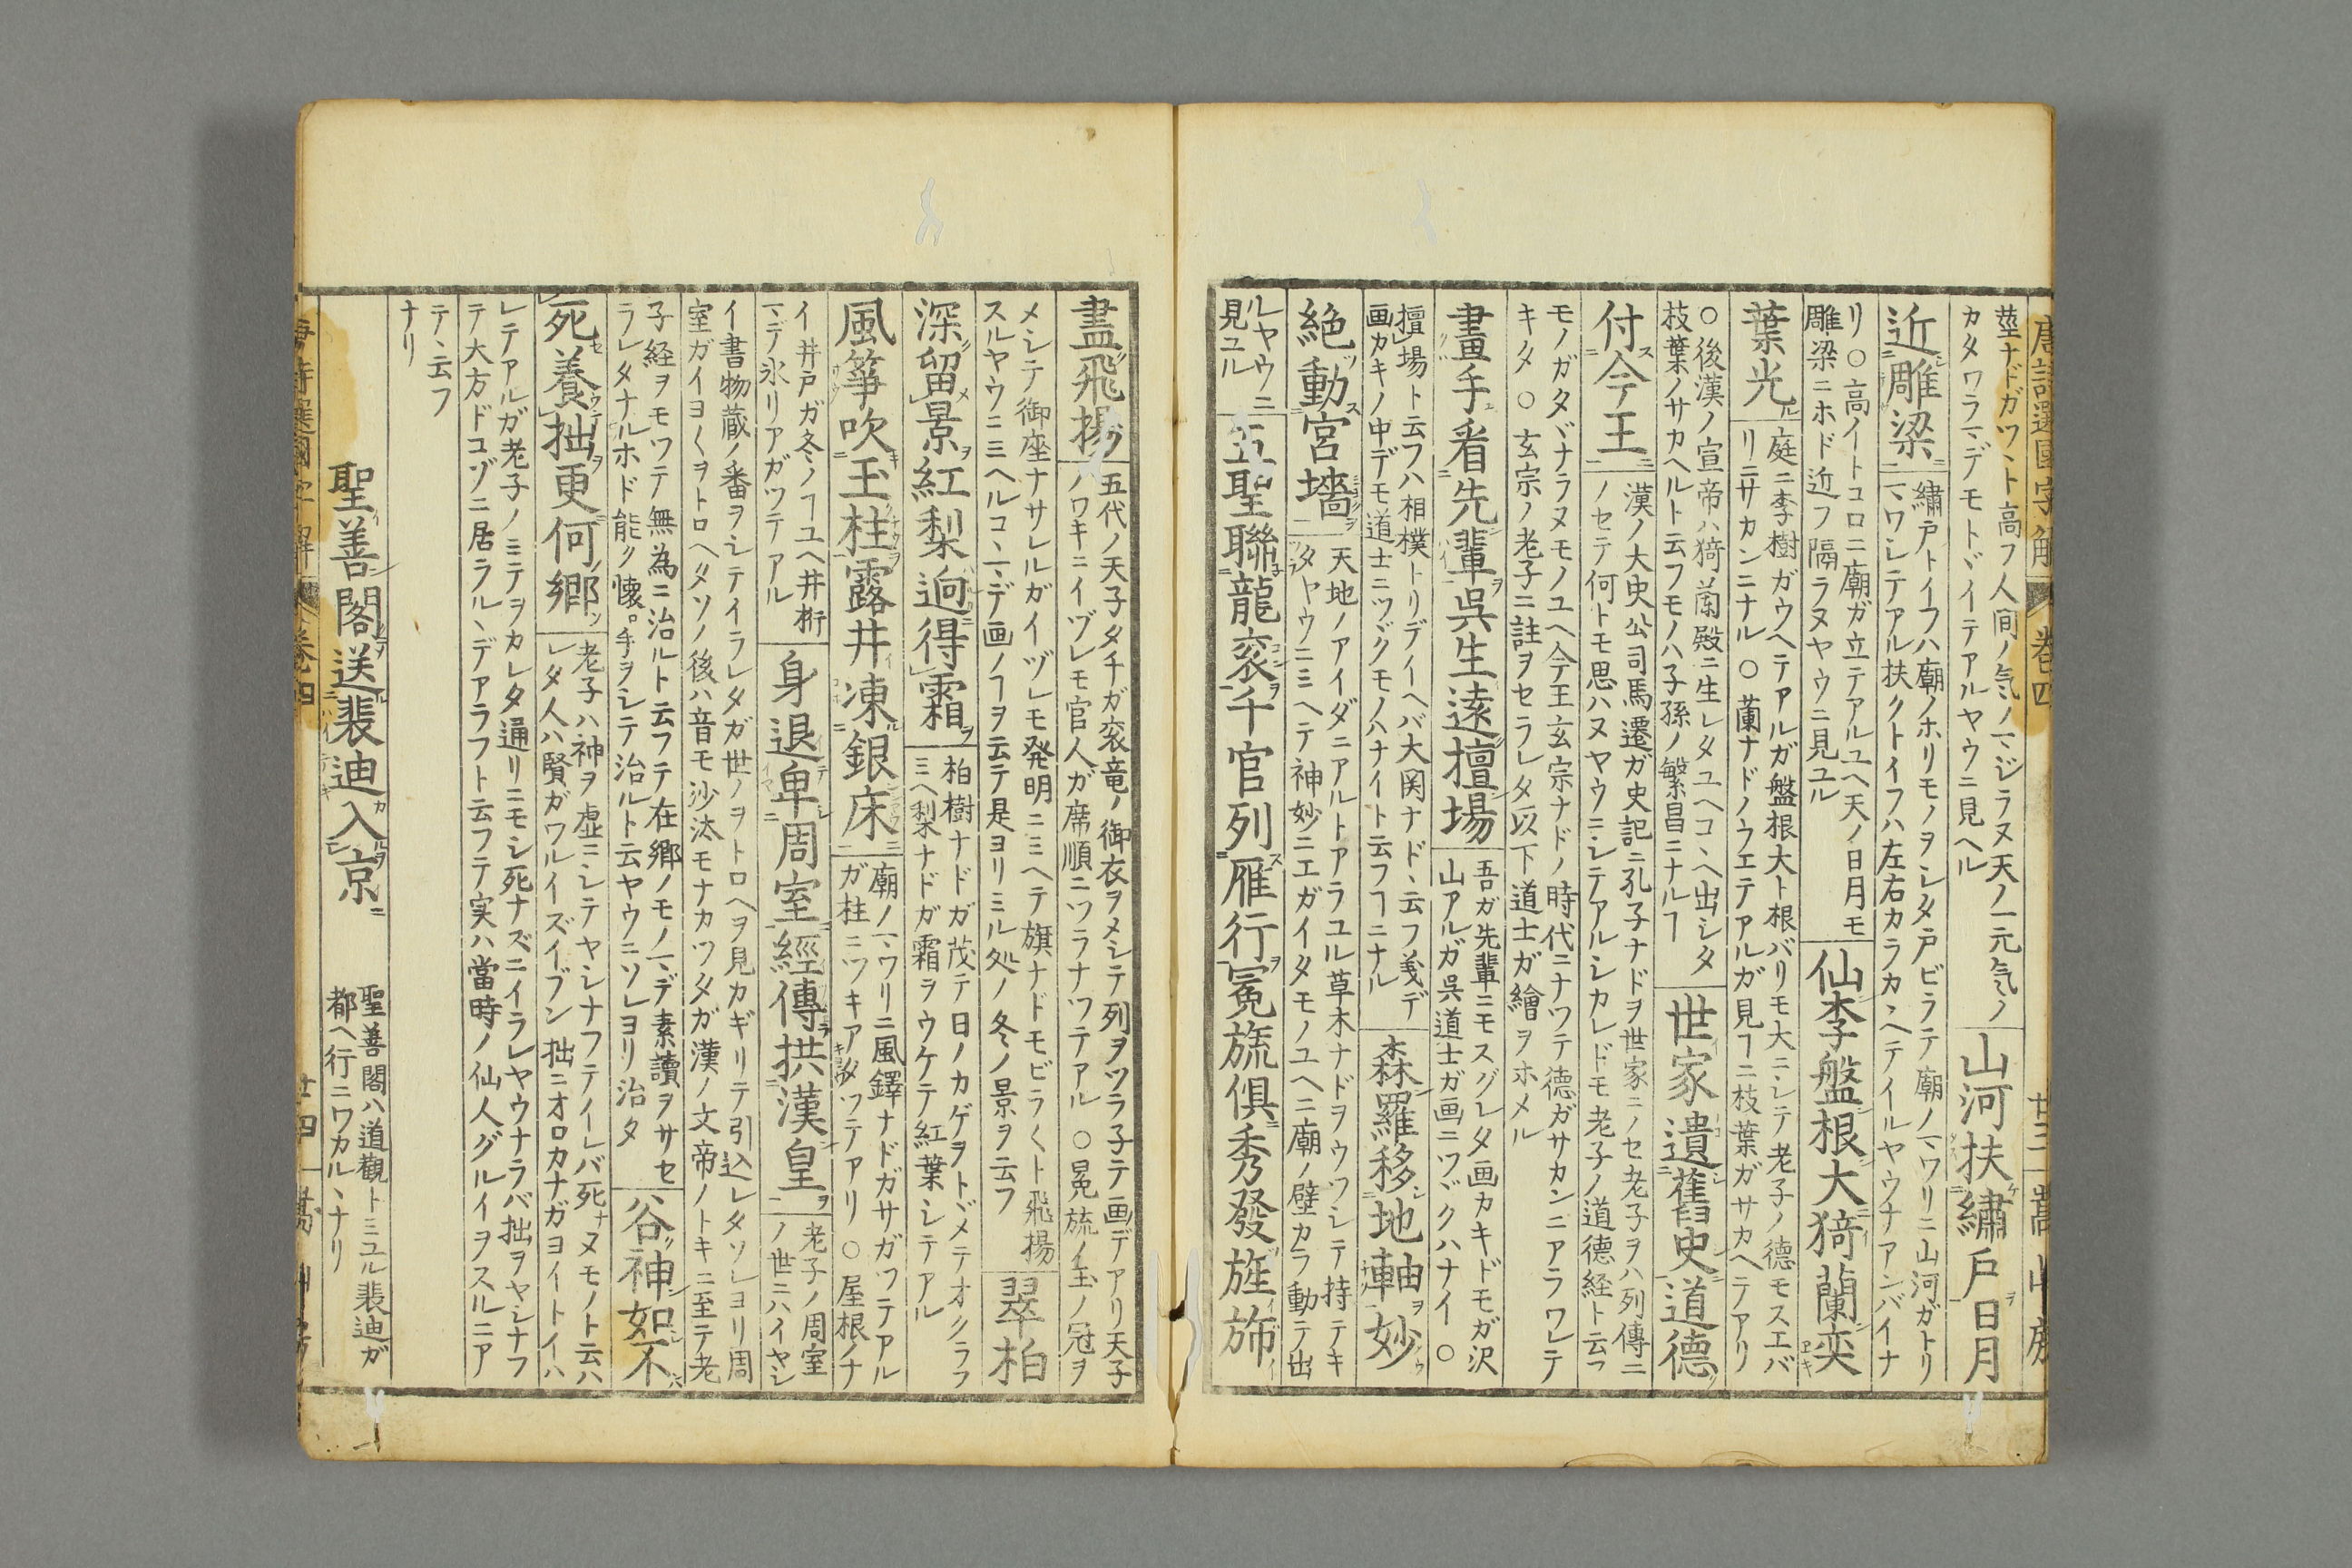 唐詩選國字解 巻四 廿三 嵩山房
莖ナドガツヽト高フ人間ノ気ノマジラヌ天ノ一元気ノ
カタワラマデモトヾイテアルヤウニ見ヘル
山河扶繡戸日月
近雕梁
繡戸トイフハ廟ノホリモノヲシタ戸ビラテ廟ノマワリニ山河ガトリ
マワレテアル扶クトイフハ左右カラカヽヘテイルヤウナアンバイナ
リ○高イトコロニ廟ガ立テアルユヘ天ノ日月モ
雕梁ニホド近フ隔ラヌヤウニ見ユル
仙李盤根大猗蘭奕
葉光
庭ニ李樹ガウヘテアルガ盤根大ト根バリモ大ニシテ老子ノ德モスエバ
リニサカンニナル○蘭ナドノウエテアルガ見ヿニ枝葉ガサカヘテアリ
○後漢ノ宣帝ハ猗蘭殿ニ生レタユヘコヽヘ出シタ
枝葉ノサカヘルト云フモノハ子孫ノ繁昌ニナルヿ
世家遺舊史道德
付今王
漢ノ大史公司馬遷ガ史記ニ孔子ナドヲ世家ニノセ老子ヲハ列傳ニ
ノセテ何トモ思ハヌヤウニシテアルシカレドモ老子ノ道德経ト云フ
モノガタヾナラヌモノユヘ今王玄宗ナドノ時代ニナツテ德ガサカンニアラワレテ
キタ○玄宗ノ老子ニ註ヲセラレタ以下道士ガ繪ヲホメル
畫手看先輩吳生遠擅場
吾ガ先輩ニモスグレタ画カキドモガ沢
山アルガ呉道士ガ画ニツヾクハナイ○
擅場ト云フハ相撲トリデイヘバ大関ナドヽ云フ義デ
画カキノ中デモ道士ニツヾクモノハナイト云フヿニナル
森羅移地軸妙
絶動宮墻
天地ノアイダニアルトアラユル草木ナドヲウツシテ持テキ
タヤウニミヘテ神妙ニエガイタモノユヘニ廟ノ壁カラ動テ出
ルヤウニ
見ユル
五聖聯龍袞千官列雁行冕旒俱秀發旌旆
盡飛揚
五代ノ天子タチガ袞竜ノ御衣ヲメシテ列ヲツラ子テ画デアリ天子
ノワキニイヅレモ官人ガ席順ニツラナツテアル○冕旒ノ玉ノ冠ヲ
メシテ御座ナサレルガイヅレモ発明ニミヘテ旗ナドモビラ〱ト飛揚
スルヤウニミヘルコヽマデ画ノヿヲ云テ是ヨリミル処ノ冬ノ景ヲ云フ
翠柏
深留景紅梨迥得霜
柏樹ナドガ茂テ日ノカゲヲトヾメテオクラフ
ミヘ梨ナドガ霜ヲウケテ紅葉シテアル
風箏吹玉柱露井凍銀床
廟ノマワリニ風鐸ナドガサガツテアル
ガ柱ニツキアタツテアリ○屋根ノナ
イ井戸ガ冬ノヿユヘ井桁
マデ氷リアガツテアル
身退卑周室經傳拱漢皇
老子ノ周室
ノ世ニハイヤシ
イ書物蔵ノ番ヲシテイラレタガ世ノヲトロヘヲ見カギリテ引込レタソレヨリ周
室ガイヨ〱ヲトロヘタソノ後ハ音モ沙汰モナカツタガ漢ノ文帝ノトキニ至テ老
子経ヲモツテ無為ニ治ルト云フテ在郷ノモノマデ素讀ヲサセ
ラレタナルホド能ク懐手ヲシテ治ルト云ヤウニソレヨリ治タ
谷神如不
死養拙更何鄉
老子ハ神ヲ虚ニシテヤシナフテイレバ死ナヌモノト云ハ
レタ人ハ賢ガワルイズイブン拙ニオロカナガヨイトイハ
レテアルガ老子ノミテヲカレタ通リニモシ死ナズニイラレヤウナラバ拙ヲヤシナフ
テ大方ドコゾニ居ラルヽデアラフト云フテ実ハ當時ノ仙人グルイヲスルニア
テヽ云フ
ナリ
聖善閣送裴迪入京
聖善閣ハ道觀トミユル裴迪ガ
都ヘ行ニワカルヽナリ
唐詩選國字解 巻四 廿四